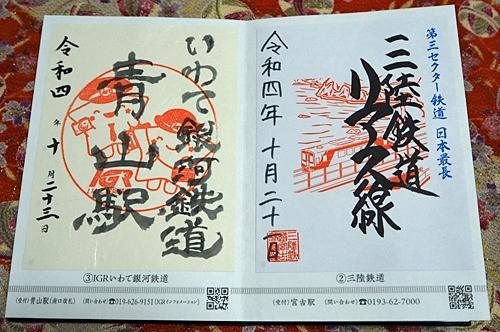 第三セクター鉄道 日本最長
三陸鉄道
リアス線
令和四年 十月二十一日
三陸鉄道
②三陸鉄道
(受付)宮古駅 (問い合わせ)☎0193-62-7000
いわて銀河鉄道
青山駅
IGR
令和四年十月二十三日
③IGRいわて銀河鉄道
(受付)青山駅(南口改札) (問い合わせ)☎019-626-9151(IGRインフォメーション)